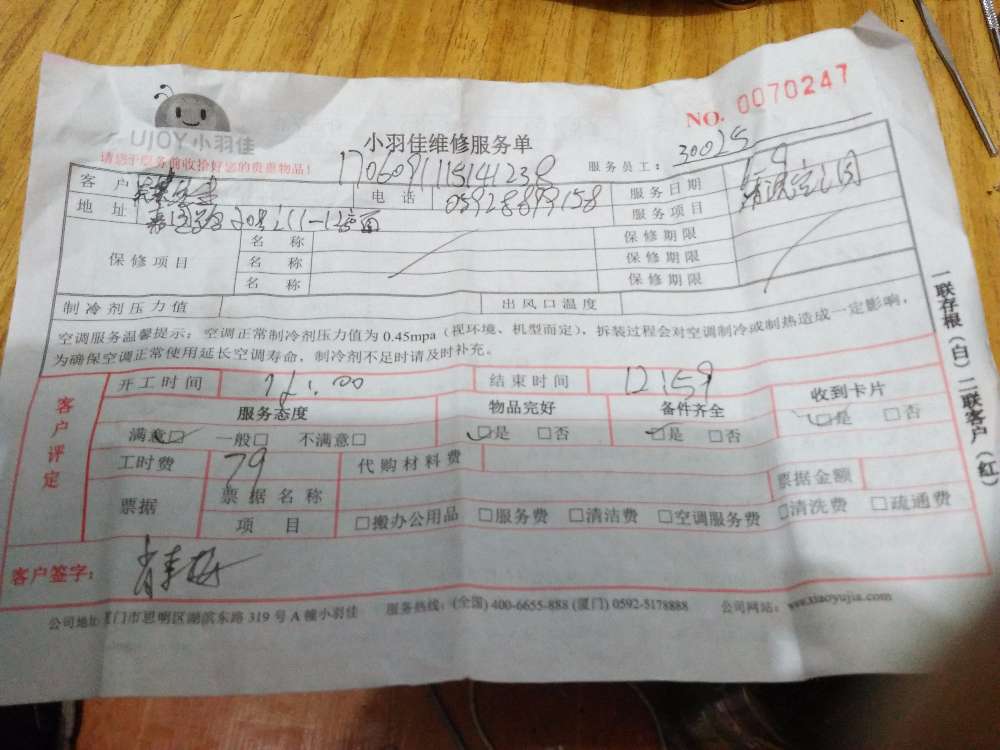 UJOY小羽佳
NO. 0070247
小羽佳维修服务单
请您于服务前收拾好您的贵重物品!
服务员工: 30025
客户 电话 05928899158 服务日期
地址 服务项目
保修项目 名称 保修期限
名称 保修期限
名称 保修期限
制冷剂压力值 出风口温度
空调服务温馨提示: 空调正常制冷剂压力值为 0.45mpa (视环境、机型而定), 拆装过程会对空调制冷或制热造成一定影响,
为确保空调正常使用延长空调寿命, 制冷剂不足时请及时补充。
客户评定
开工时间 结束时间 12:59
服务态度 物品完好 备件齐全 收到卡片
满意□ 一般□ 不满意□ □是 □否 □是 □否 □是 □否
工时费 79 代购材料费
票据 票据名称 票据金额
项目 □搬办公用品 □服务费 □清洁费 □空调服务费 □清洗费 □疏通费
客户签字:
公司地址 厦门市思明区湖滨东路 319 号 A 幢小羽佳 服务热线: (全国) 400-6655-888 (厦门) 0592-5178888 公司网站: www.xiaoyujia.com
一联存根(白) 二联客户(红)